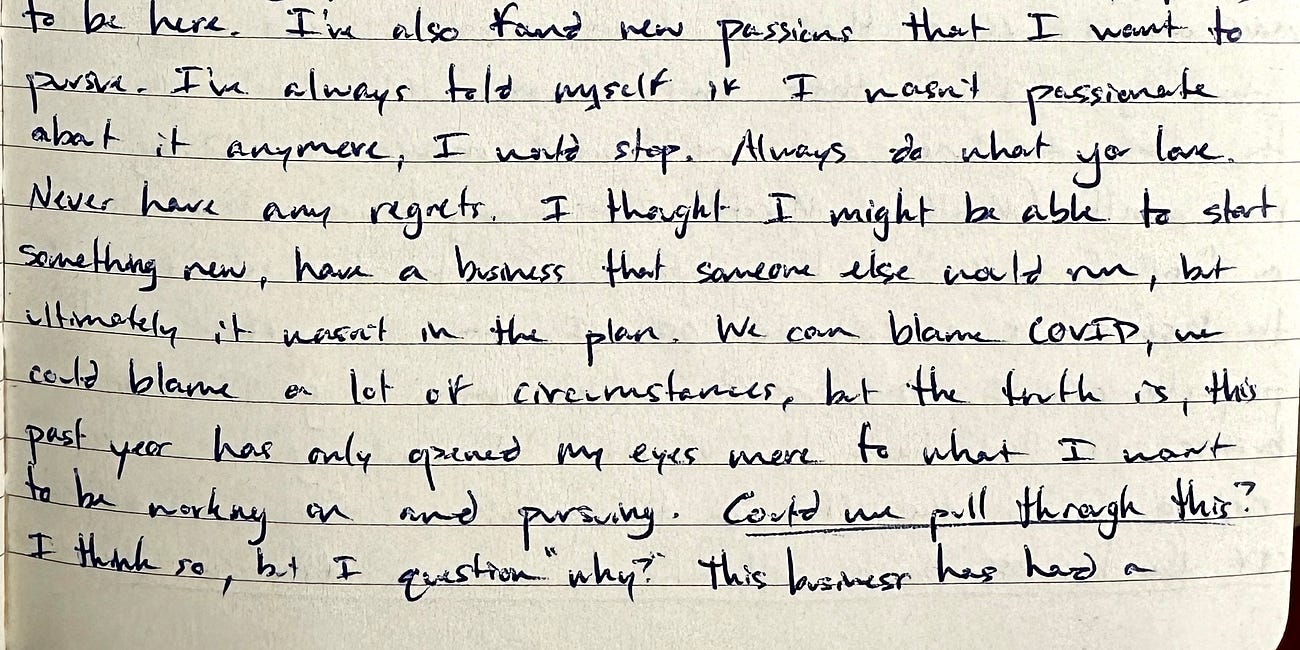 to be here. I've also found new passions that I want to
pursue. I've always told myself if I wasn't passionate
about it anymore, I would stop. Always do what you love.
Never have any regrets. I thought I might be able to start
something new, have a business that someone else would run, but
ultimately it wasn't in the plan. We can blame COVID, we
could blame a lot of circumstances, but the truth is, this
past year has only opened my eyes more to what I want
to be working on and pursuing. Could we pull through this?
I think so, but I question "why?" This business has had a